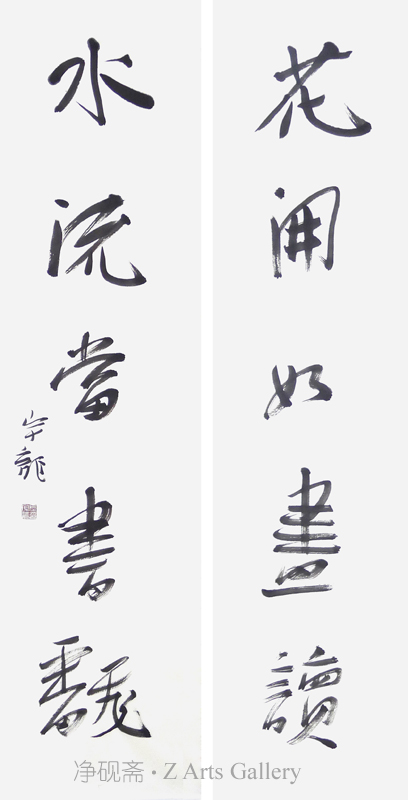 花開如畫讀
水流當書飜
净砚斋 · Z Arts Gallery